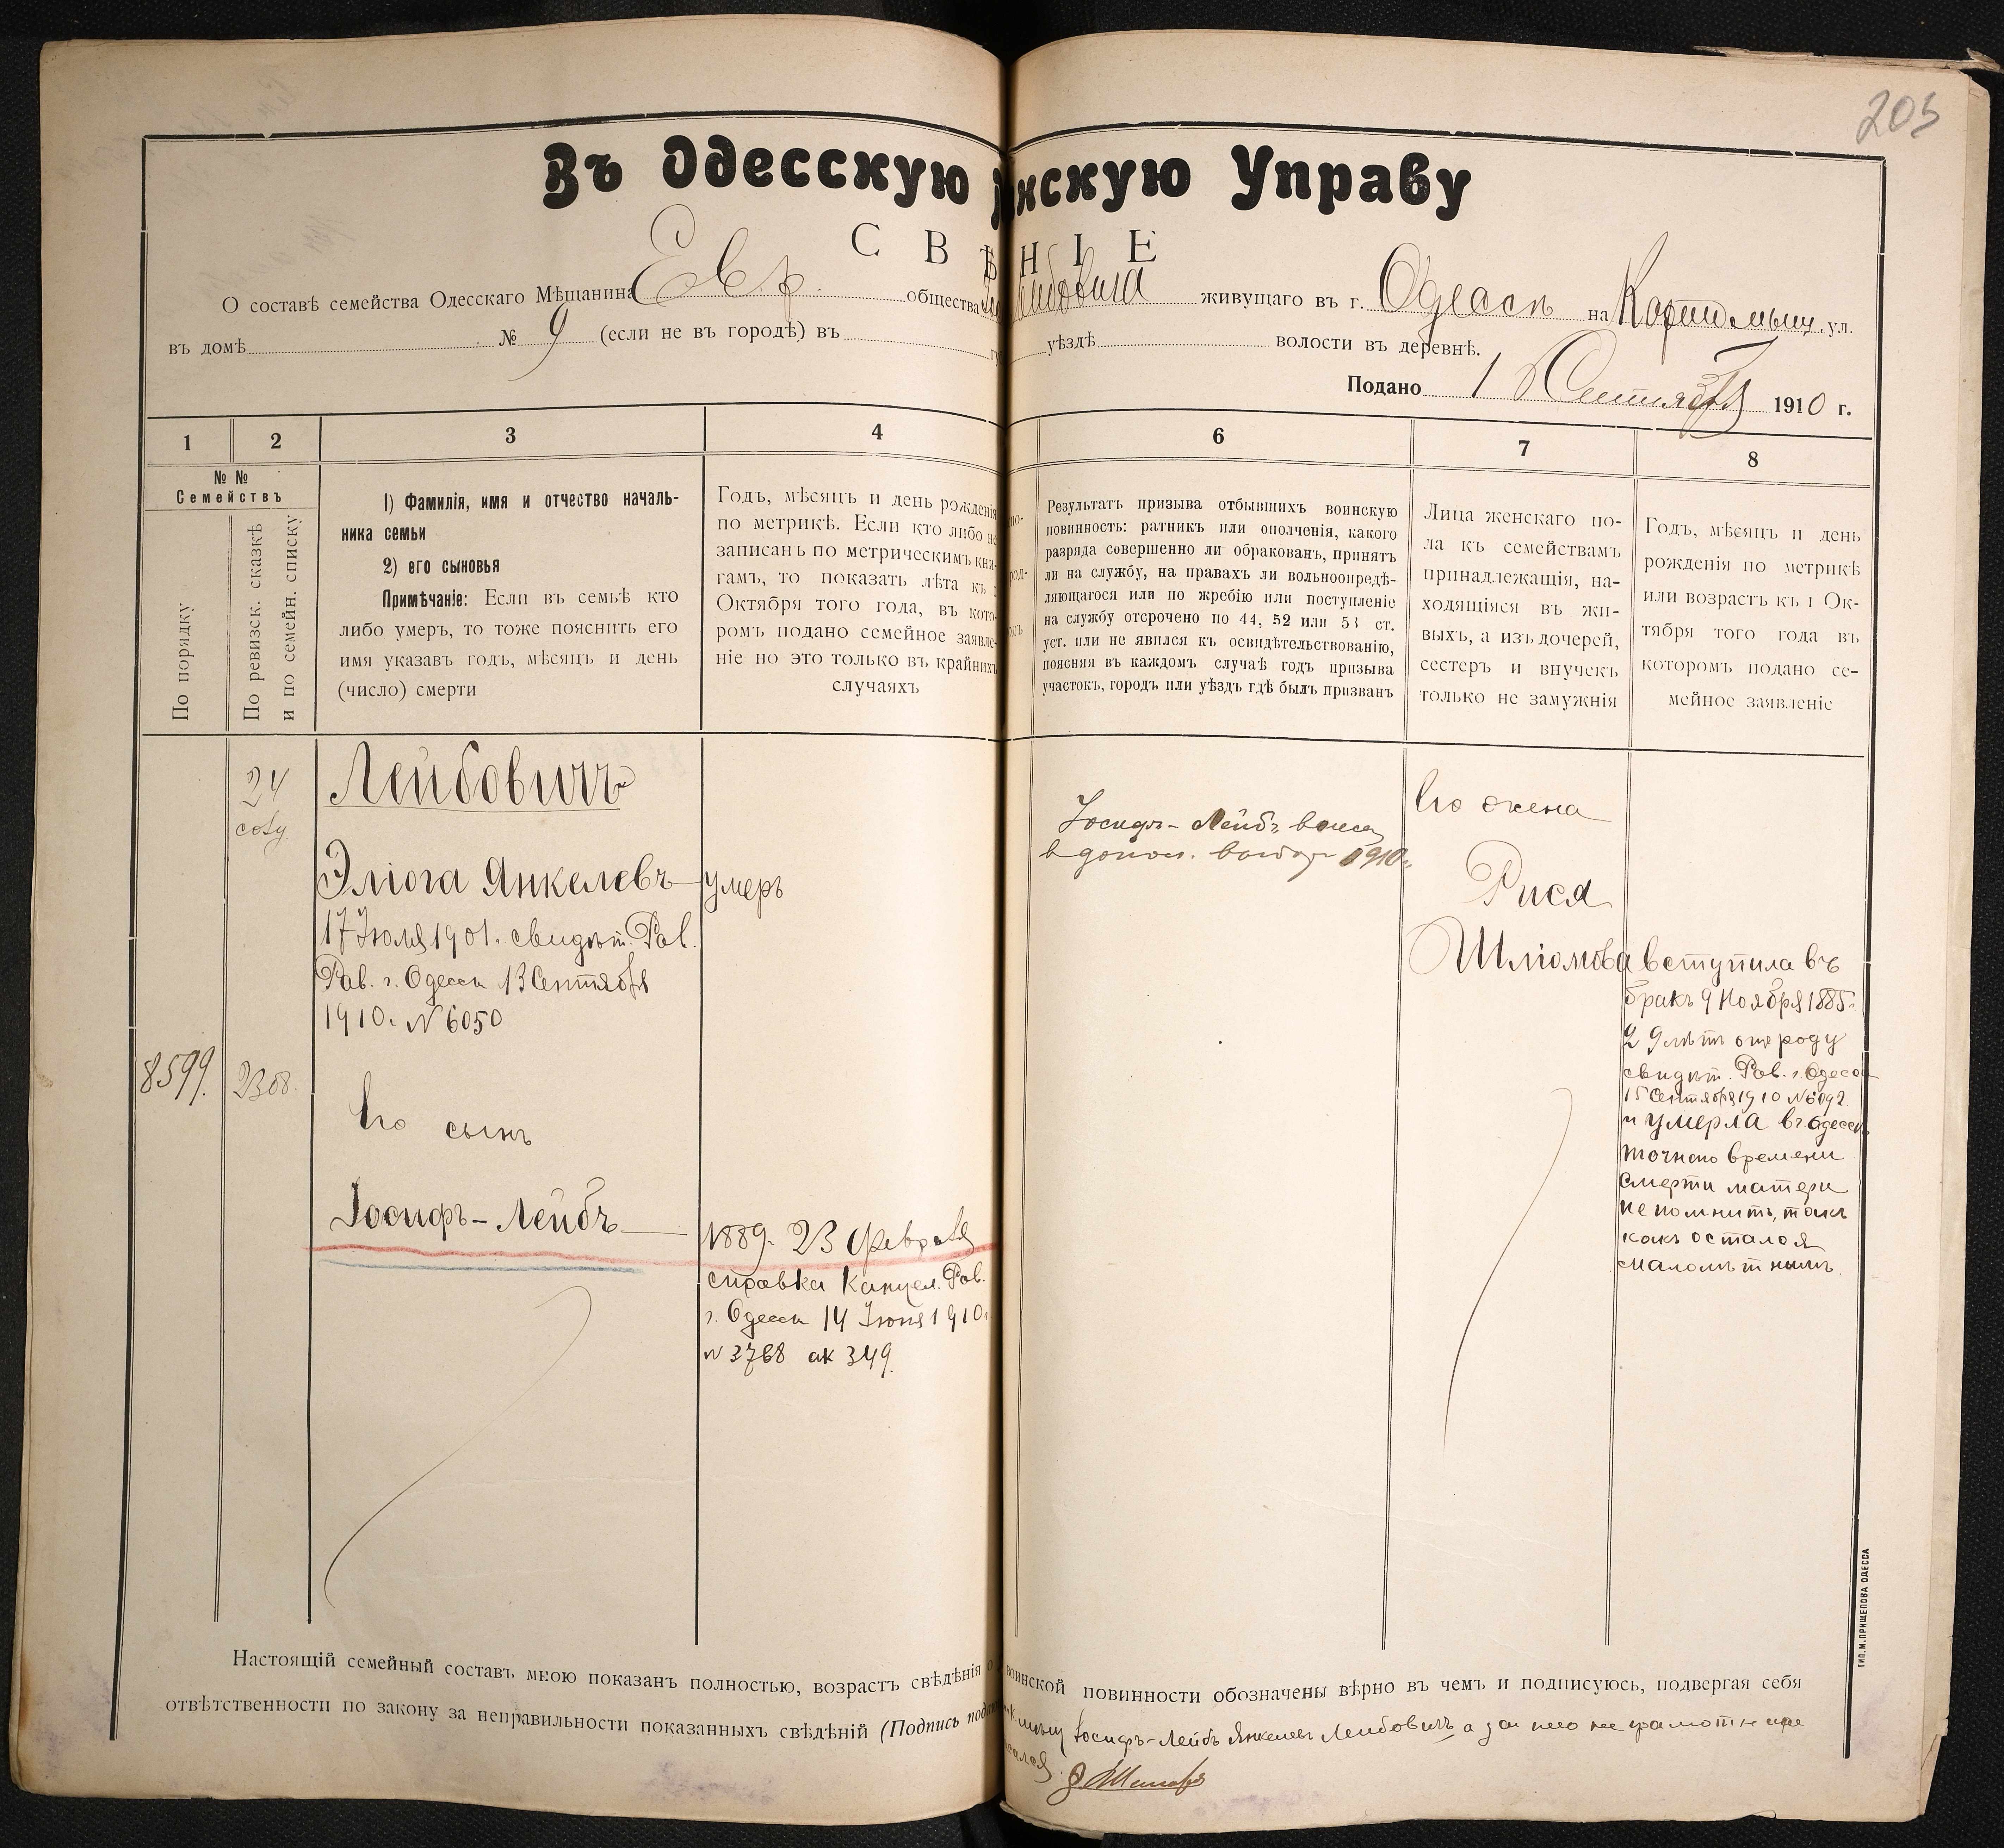 203
Въ Одесскую нскую Управу
С В Ѣ Н І Е
О составѣ семейства Одесскаго Мѣщанина Евр. общества Лейбовича живущаго въ г. Одессѣ на ул.
въ домѣ № 9 (если не въ городѣ) въ гу уѣздѣ волости въ деревнѣ.
Подано 1 Сентября 1910 г.
1 2 3 4 6 7 8
№ №
Семействъ
По порядку
По ревизск. сказкѣ
и по семейн. списку
1) Фамилія, имя и отчество началь-
ника семьи
2) его сыновья
Примѣчаніе: Если въ семьѣ кто
либо умеръ, то тоже пояснить его
имя указавъ годъ, мѣсяцъ и день
(число) смерти
Годъ, мѣсяцъ и день рожденія
по метрикѣ. Если кто либо не
записанъ по метрическимъ кни-
гамъ, то показать лѣта къ 1
Октября того года, въ кото-
ромъ подано семейное заявле-
ніе но это только въ крайнихъ
случаяхъ
Результатъ призыва отбывшихъ воинскую
повинность: ратникъ или ополченія, какого
разряда совершенно ли обракованъ, принятъ
ли на службу, на правахъ ли вольноопредѣ-
ляющагося или по жребію или поступленіе
на службу отсрочено по 44, 52 или 53 ст.
уст. или не явился къ освидѣтельствованію,
поясняя въ каждомъ случаѣ годъ призыва
участокъ, городъ или уѣздъ гдѣ былъ призванъ
Лица женскаго по-
ла къ семействамъ
принадлежащія, на-
ходящіяся въ жи-
выхъ, а изъ дочерей,
сестеръ и внучекъ
только не замужнія
Годъ, мѣсяцъ и день
рожденія по метрикѣ
или возрастъ къ 1 Ок-
тября того года въ
которомъ подано се-
мейное заявленіе
24
Лейбовичъ
Эліога Янкелевъ умеръ
17 Іюля 1901 г. свидѣт. Рав.
Рав. г. Одессы 13 Сентября
1910 г. N 6050
8599.
2308.
Его сынъ
Іосифъ-Лейбъ
1889 г. 23 Февраля
справка Канцел. Рав.
г. Одессы 14 Іюня 1910 г.
N 3768 ак 349.
Іосифъ-Лейбъ
в допол. 1910 г.
Его жена
Рися
Шліомова
вступила въ
бракъ 9 Ноября 1885 г.
29 лѣтъ отъ роду
свидѣт. Рав. г. Одессы
15 Сентября 1910 N 6092
и умерла въ г. Одессѣ
точнаго времени
смерти матери
не помнитъ, такъ
какъ остался
малолѣтнымъ.
Настоящій семейный составъ мною показанъ полностью, возрастъ свѣдѣнія о воинской повинности обозначены вѣрно въ чемъ и подписуюсь, подвергая себя
отвѣтственности по закону за неправильности показанныхъ свѣдѣній (Подпись Іосифъ-Лейбъ Янкелевъ Лейбовичъ а за него не грамотнаго
ТИП. М. ПРИЩЕПОВА ОДЕССА